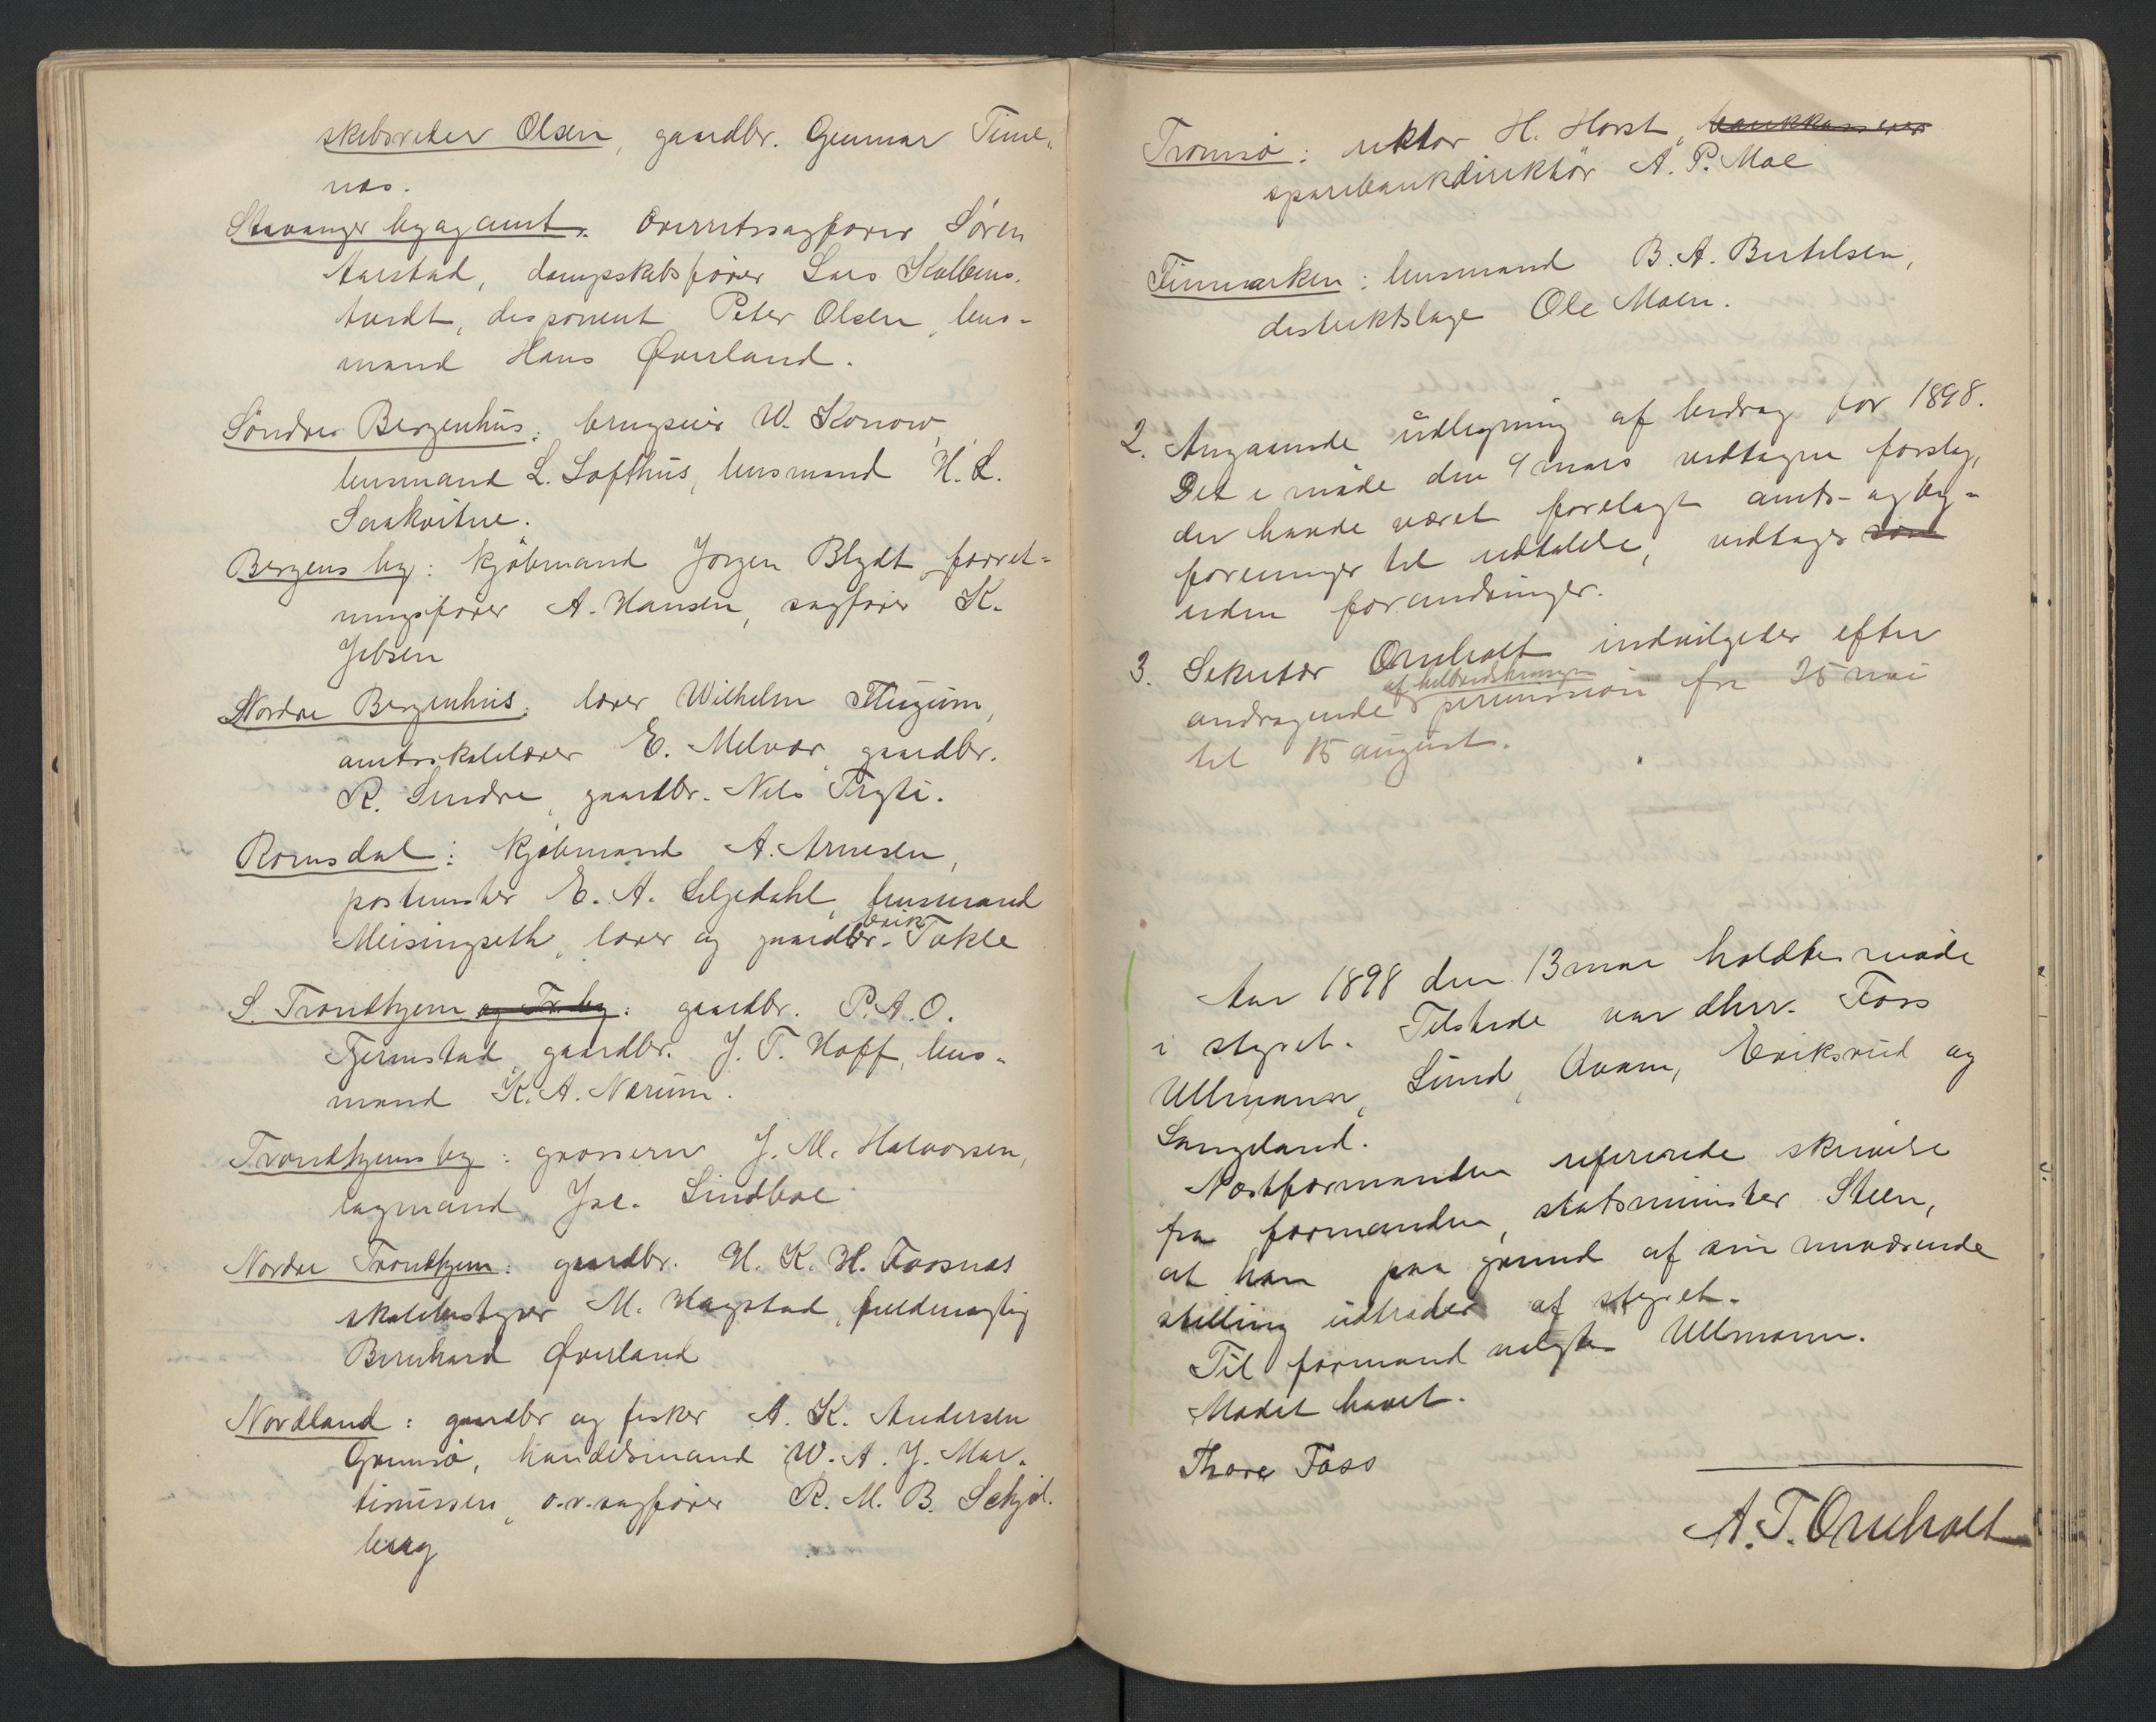 skibsreder Olsen, gaardbr. Gunnar Time-
nes.
Stavanger by og amt. Overretssagfører Søren
Aarstad, dampskibsfører Lars Kolbens-
tvedt, disponent Peter Olsen, lens-
mand Hans Øverland.
Söndre Bergenhus: brugseier W. Konow,
lensmand L. Lofthus, lensmand H. L.
Laakvitne.
Bergens by: kjøbmand Jörgen Blydt, forret-
ningsfører A. Hansen, sagfører K.
Jebsen
Nordre Bergenhus: lærer Wilhelm
amtsskolelærer E. Melvær, gaardbr.
R. Sindre, gaardbr. Nils Tryti.
Romsdal: kjøbmand A. Arnesen,
postmester E. A. Liljedahl, lensmand
Meisingseth, lærer og gaardbr. Erik Takle
S. Trondhjem og Tr. by: gaardbr. P. A. O.
Fjermstad, gaardbr. J. T. Hoff, lens-
mand K. A. Nærum.
Trondhjems by: grosserer J. M. Halvorsen,
lagmand Jac. Lindboe
Nordre Trondhjem: gaardbr. H. K. H. Foosnæs
skolebestyrer M. Hagstad, fuldmægtig
Bernhard Øverland
Nordland: gaardbr og fisker A. K. Andersen
Grimsø, handelsmand W. A. J. Mar-
tinussen, o.r.sagfører R. M. B. Schjøl-
berg
Tromsø: rektor H. Horst, bankkasserer
sparebankdirektör A. P. Moe
Finmarken: lensmand B. A. Bertelsen,
distriktslæge Ole Moen.
2. Angaaende udligning af bidrag for 1898.
Det i møde den 9 mars vedtagne forslag,
der havde været forelagt amts- og by-
foreninger til udtalelse, vedtages som
uden forandringer.
3. Sekretær Omholt indvilgedes efter
af helbredshensyn
andragende permission fra 25 mai
til 15 august.
Aar 1898 den 13 mai holdtes møde
i styret. Tilstede var dhrr. Foss
Ullmann, Lund, Qvam, Eriksrud og
Langeland.
Næstformanden refererede skrivelse
fra formanden, statsminister Steen,
at han paa grund af sin nuværende
stilling udtræder af styret.
Til formand valgtes Ullmann.
Mødet hævet.
Thore Foss
A. T. Omholt